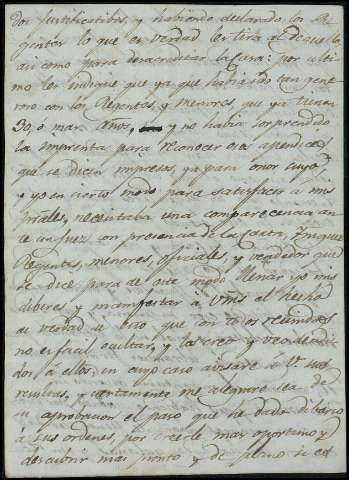 dos justificarlos, y habiendo declarado los Re
gentes lo que en verdad les tira al degüello,
asi como para desacreditar la Casa: por ulti
mo les indiqué que ya que habia sido tan gene
roso con los Regentes, y menores, que ya tienen
30, o mas años, y no habia sorprendido
la imprenta para reconocer esos apendices
que se dicen impresos, ya para onor suyo,
y yo en cierto modo para satisfacer a mis
necesitaba una comparecencia an
te un Juez con presencia de la
Regentes, menores, oficiales, y vendedor que
se dice, para de este modo llenar yo mis
deberes y manifestar á Vms el hecho
de verdad o no que con todos reunidos
no es facil ocultar, y las creo y veo decidi
dos á ello; en cuyo caso avisaré á V. sus
resultas, y ciertamente me alegrare sea de
su aprobacion el paso que he dado de baxo
á sus ordenes, por creerle mas oportuno p.ª
descubrir mas pronto y de plano si es